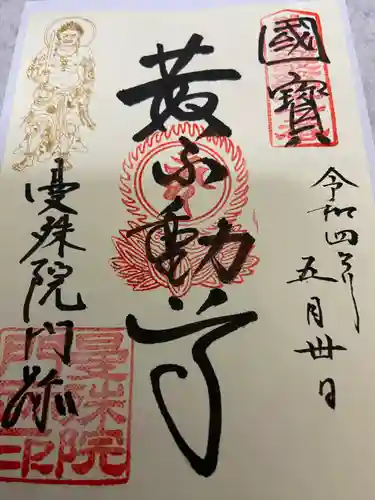 國寳
令和四年
五月卅日
黄不動尊
曼殊院門跡
曼殊院
門跡印